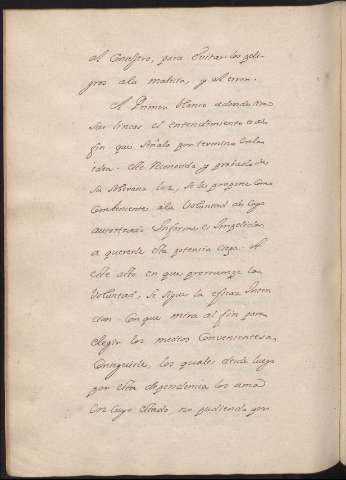 al Consejero, para evitar los peli-
gros a la malicia, y al error.
El Primer blanco adonde
sus lineas el entendimiento es al
fin que señala por termino en la
idea. Este Reconocido y
su soberana luz, se le propone como
combeniente a la Voluntad de cuya
autoridad Informa es Impelida
a quererle esta potencia ciega. Al
este alto en que prorrumpe la
Voluntad, se sigue la eficaz Inten-
cion con que mira al fin para
elegir los medios Convenientes a
Conseguirle, los quales desde luego
por esta dependencia los ama
en cuyo estado, no pudiendo por